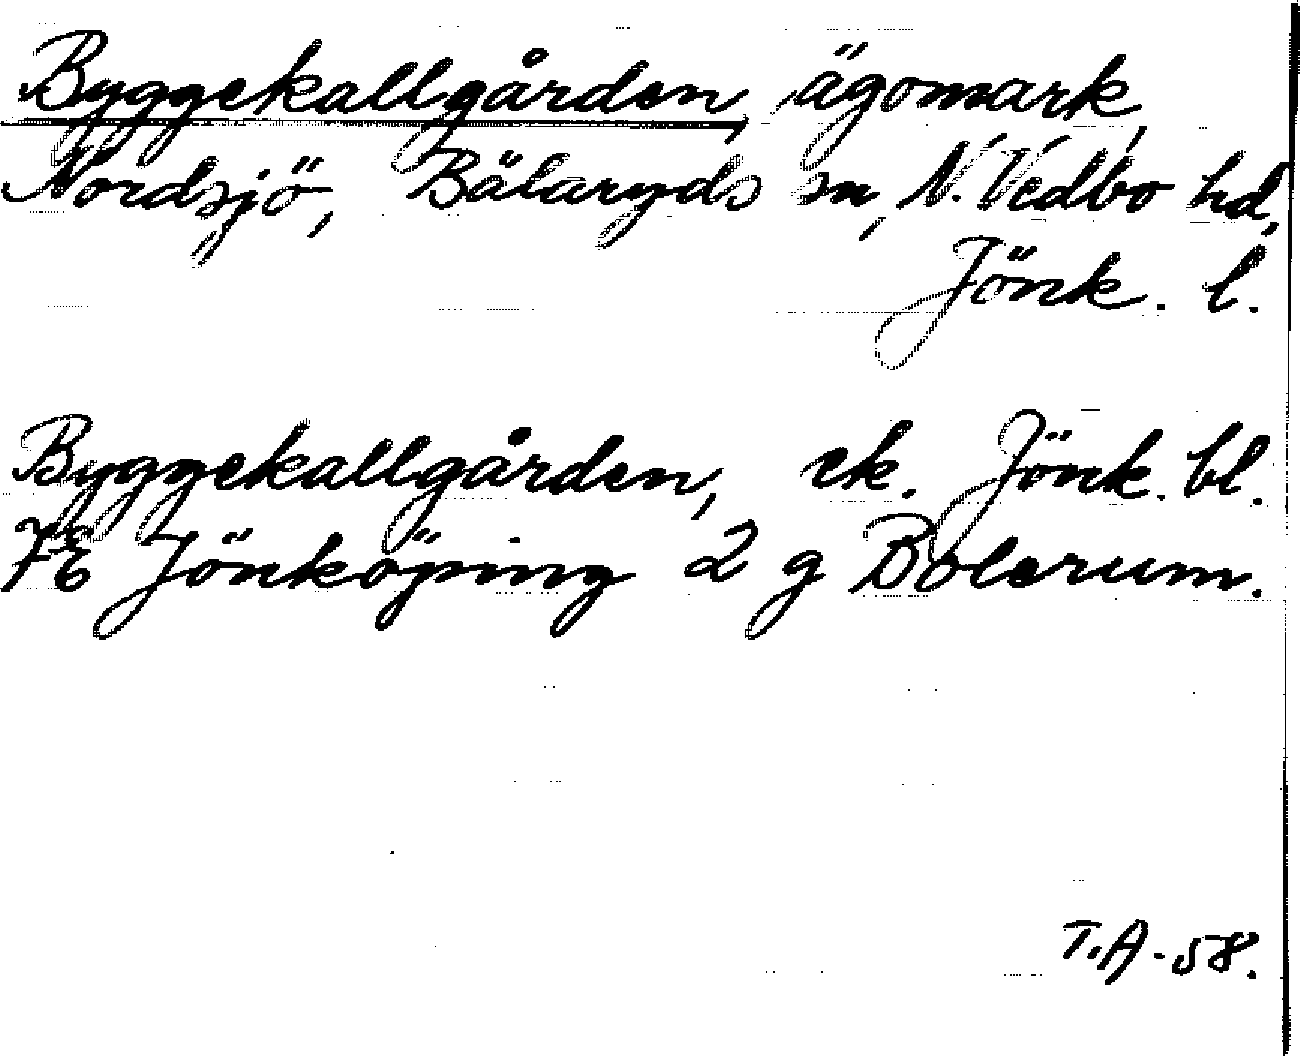 Byggekallgården, ägomark,
Nordsjö, Bälaryds sn, N. Vedbo hd,
Jönk. l.
Byggekallgården, ek. Jönk. bl.
7E Jönköping 2 g Bolerum.
T.A-58.